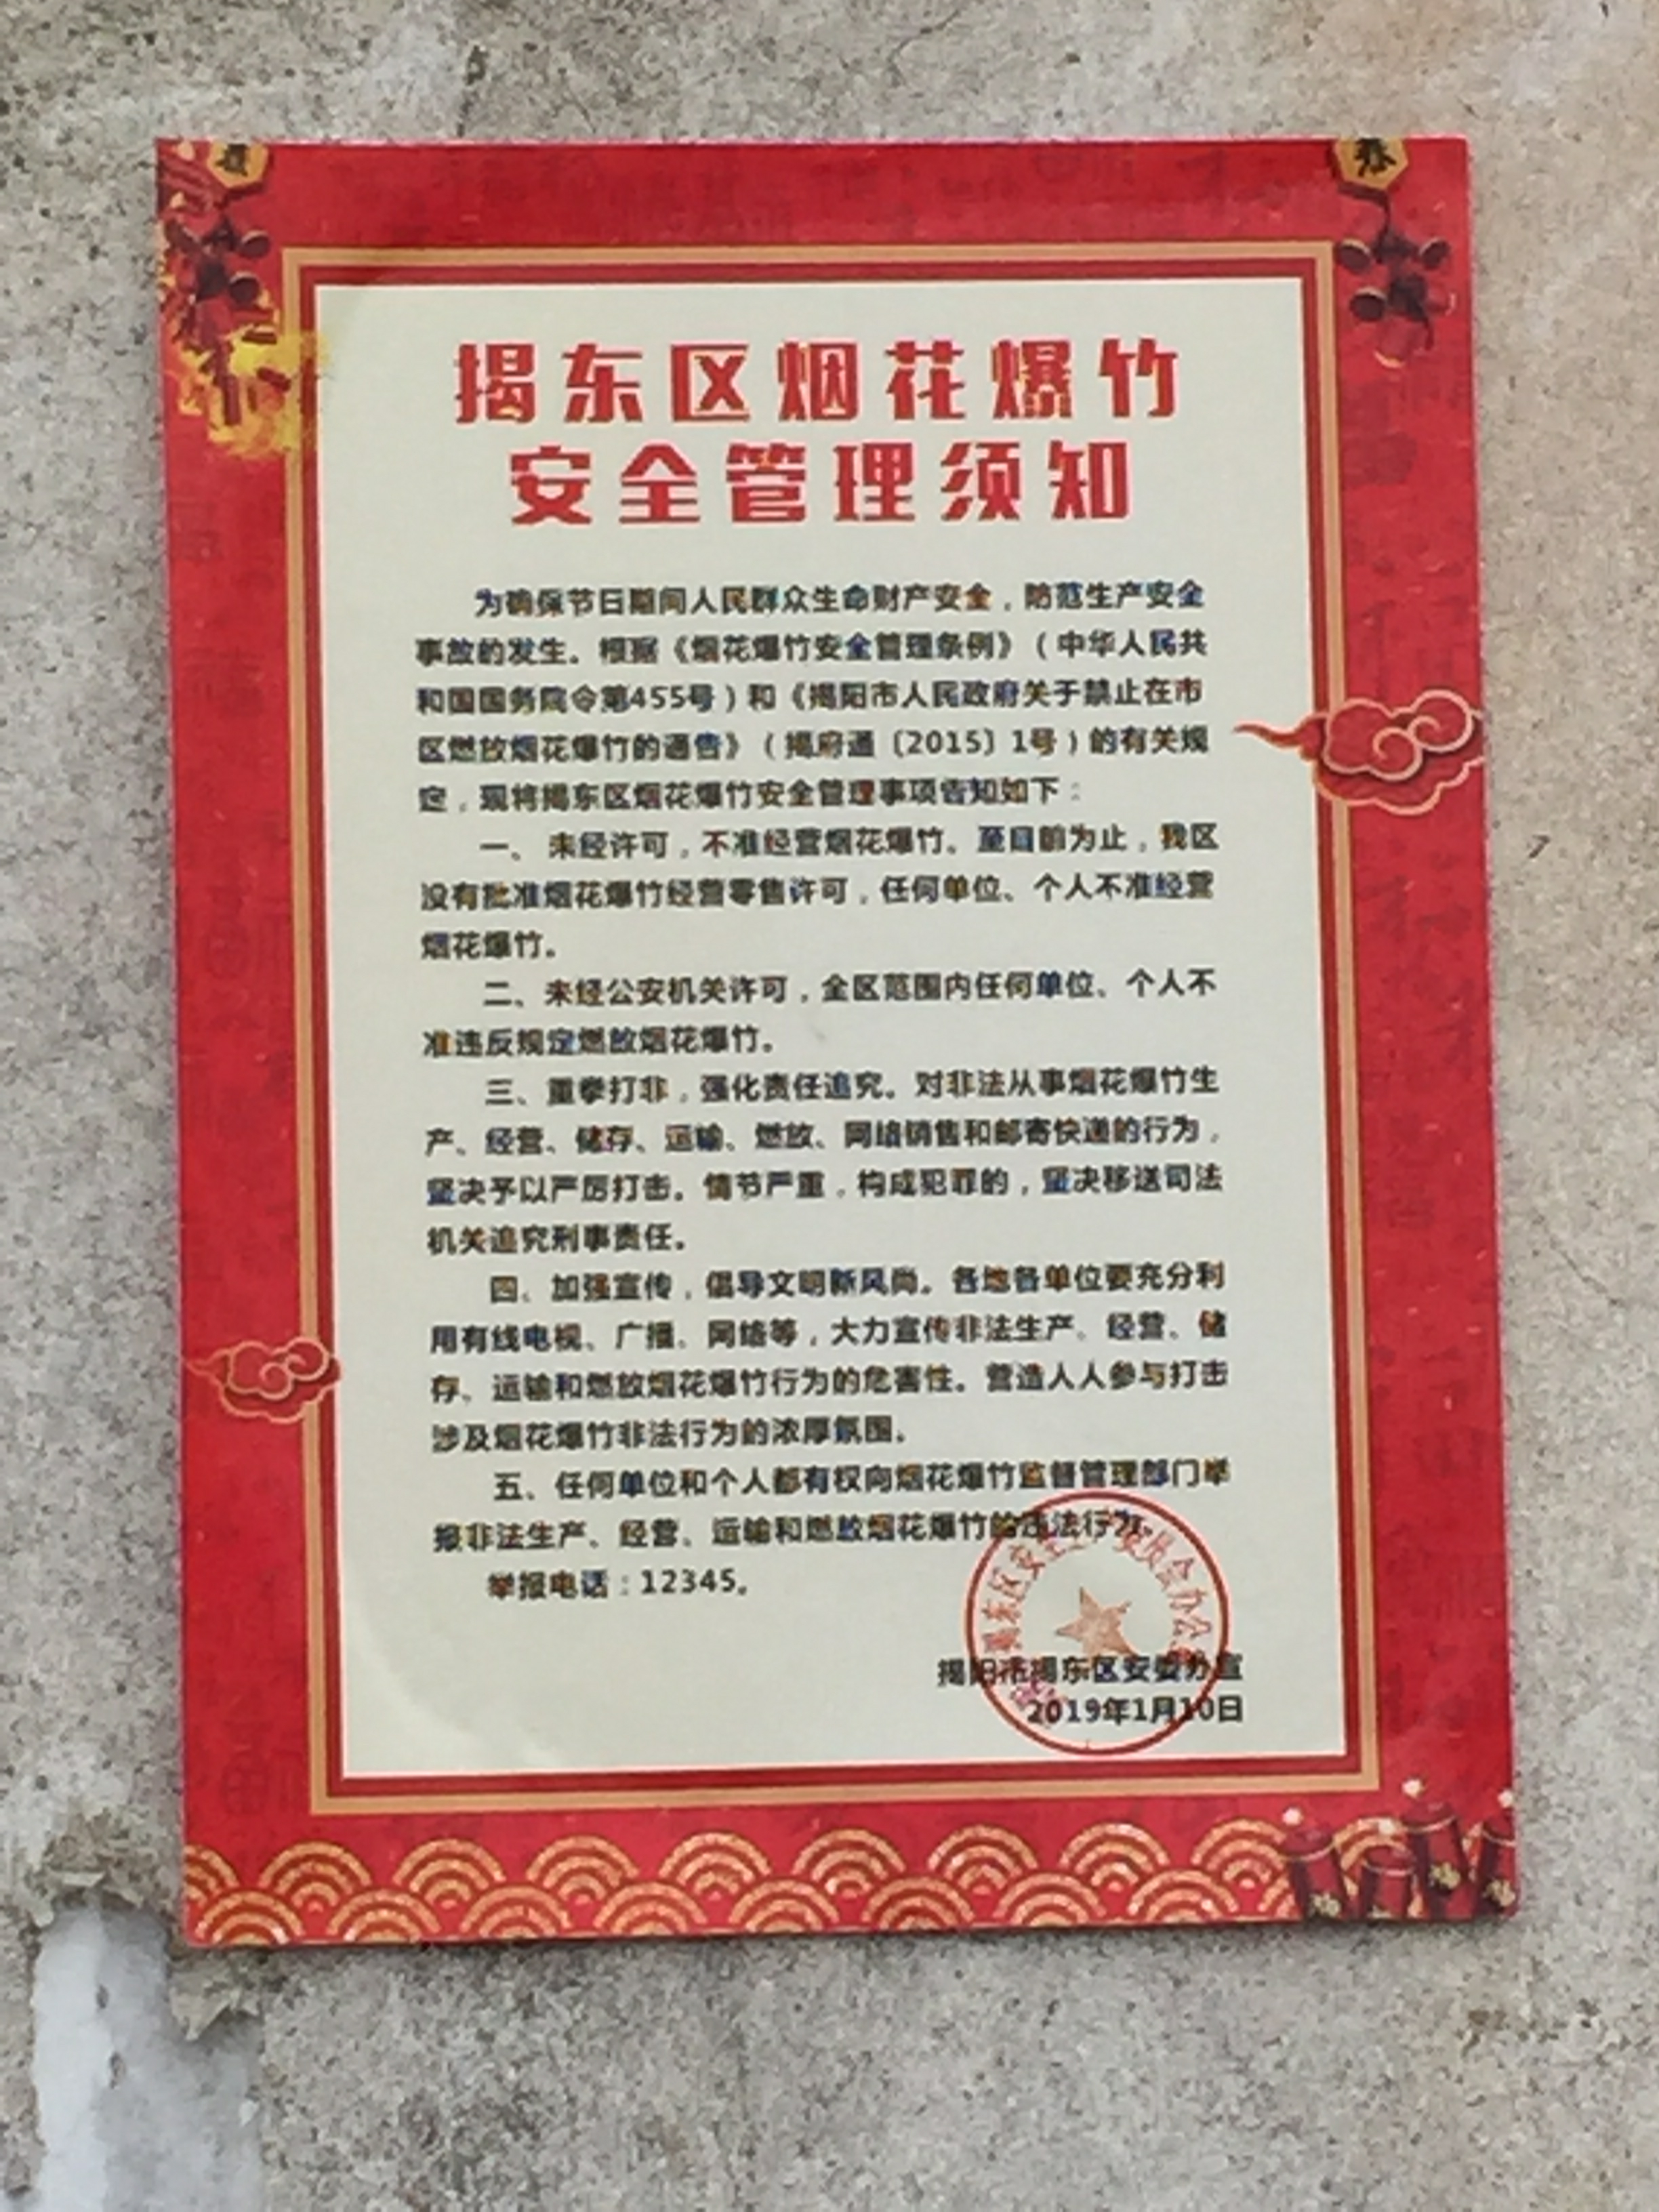 春
揭东区烟花爆竹
安全管理须知
为确保节日期间人民群众生命财产安全，防范生产安全
事故的发生。根据《烟花爆竹安全管理条例》（中华人民共
和国国务院令第455号）和《揭阳市人民政府关于禁止在市
区燃放烟花爆竹的通告》（揭府通〔2015〕1号）的有关规
定，现将揭东区烟花爆竹安全管理事项告知如下：
一、 未经许可，不准经营烟花爆竹。至目前为止，我区
没有批准烟花爆竹经营零售许可，任何单位、个人不准经营
烟花爆竹。
二、未经公安机关许可，全区范围内任何单位、个人不
准违反规定燃放烟花爆竹。
三、重拳打非，强化责任追究。对非法从事烟花爆竹生
产、经营、储存、运输、燃放、网络销售和邮寄快递的行为，
坚决予以严厉打击。情节严重，构成犯罪的，坚决移送司法
机关追究刑事责任。
四、加强宣传，倡导文明新风尚。各地各单位要充分利
用有线电视、广播、网络等，大力宣传非法生产、经营、储
存、运输和燃放烟花爆竹行为的危害性。营造人人参与打击
涉及烟花爆竹非法行为的浓厚氛围。
五、任何单位和个人都有权向烟花爆竹监督管理部门举
报非法生产、经营、运输和燃放烟花爆竹的违法行为。
举报电话：12345。
揭阳市揭东区安委办宣
2019年1月10日